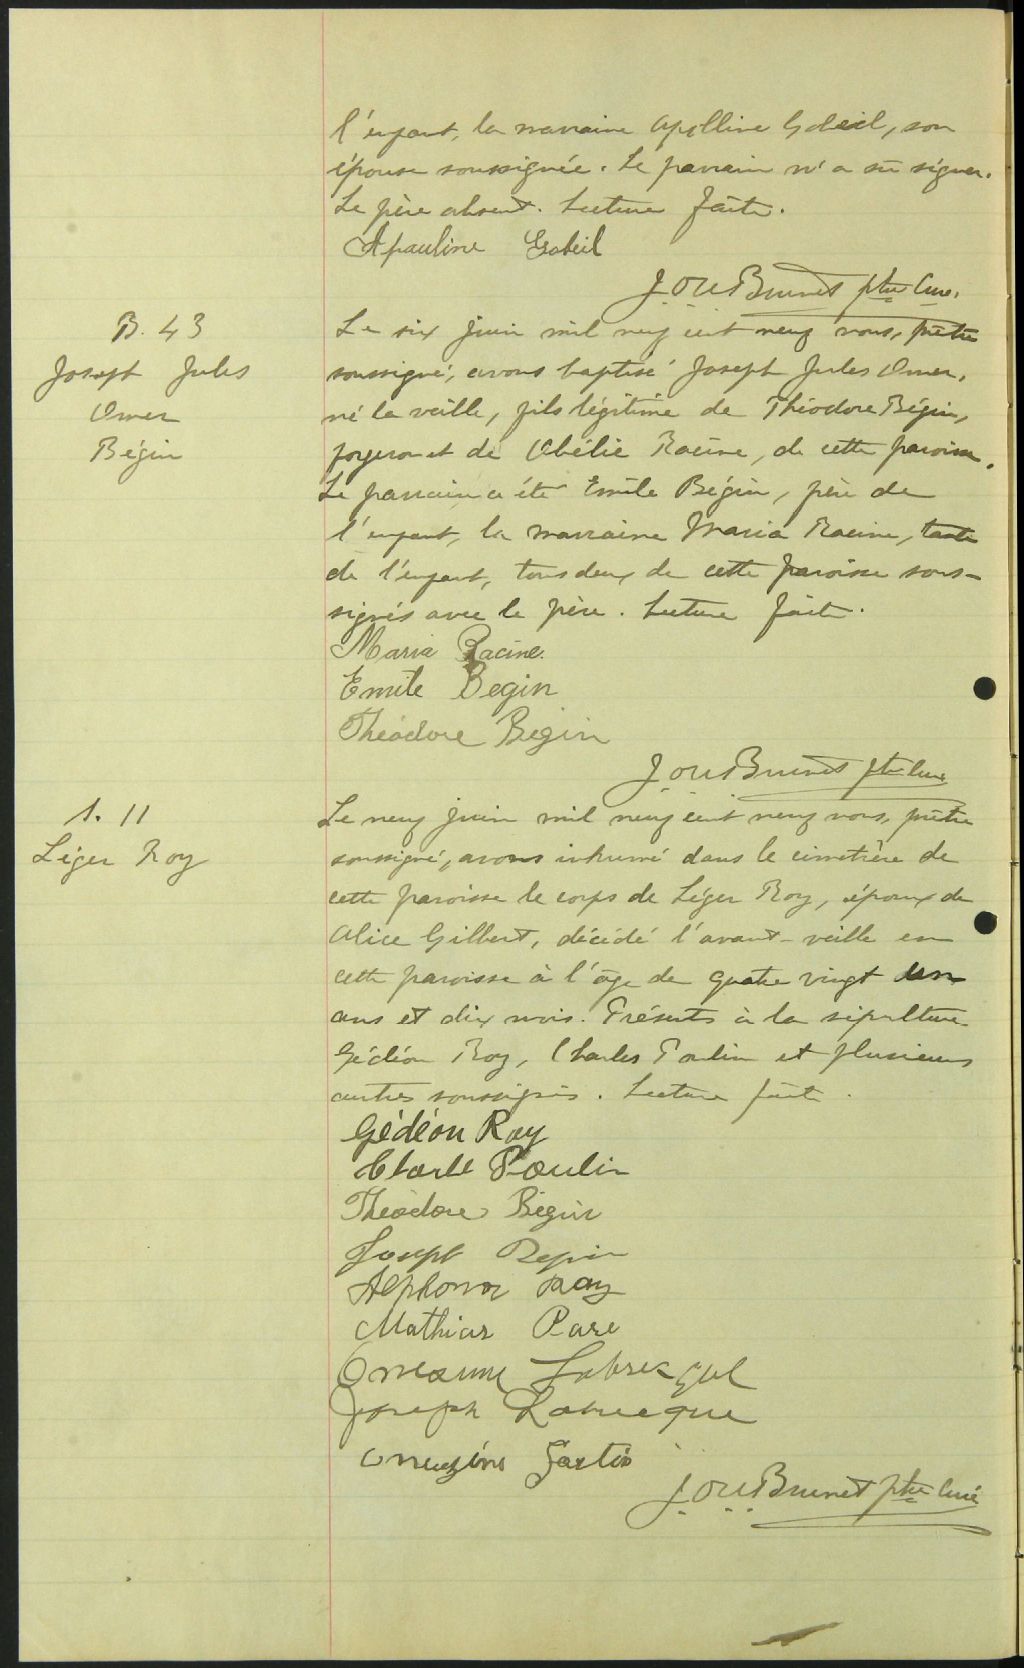 l'enfant, la marraine Apolline Gobeil, son
épouse soussignée. Le parrain n'a su signer.
Le père absent. Lecture faite.
Apauline Gobeil
J. Brunet ptre Curé.
B. 43
Joseph Jules
Omer
Bégin
Le six juin mil neuf cent neuf nous, prêtre
soussigné, avons baptisé Joseph Jules Omer,
né la veille, fils légitime de Théodore Bégin,
forgeron et de Obélie Racine, de cette paroisse.
Le parrain a été Emile Bégin, père de
l'enfant, la marraine Maria Racine, tante
de l'enfant, tous deux de cette paroisse sous-
signés avec le père. Lecture faite.
Maria Racine.
Emile Begin
Théodore Begin
J. Brunet ptre Curé
S. 11
Léger Roy
Le neuf juin mil neuf cent neuf nous, prêtre
soussigné, avons inhumé dans le cimetière de
cette paroisse le corps de Léger Roy, époux de
Alice Gilbert, décédé l'avant-veille en
cette paroisse à l'âge de quatre vingt un
ans et dix mois. Présents à la sépulture
Gédéon Roy, Charles Poulin et plusieurs
autres soussignés. Lecture faite.
Gédéon Roy
Charle Poulin
Théodore Bégin
Joseph Pepin
Alphonse Roy
Mathias Pare
Joseph Labrecque
J. Brunet ptre Curé